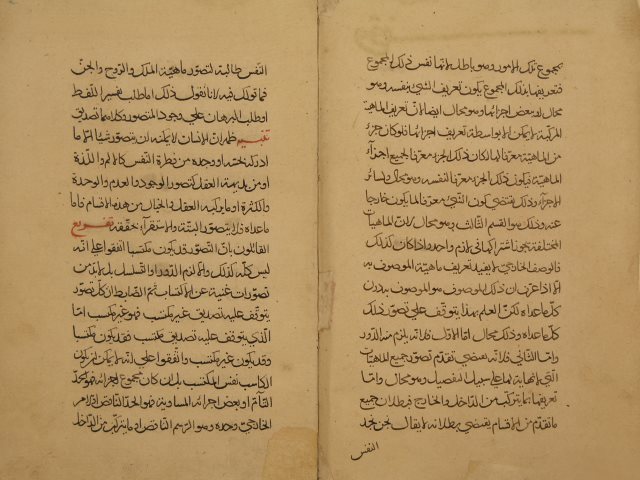 مجموع تلك الامور وهو باطل لانها نفس ذلك المجموع
فتعريفها بذلك المجموع يكون تعريف الشيء بنفسه وهو
محال او ببعض اجزائها وهو محال ايضا لان تعريف الماهية
المركبة لا يمكن الا بواسطة تعريف اجزائها فلو كان جزء
من الماهية معرفا لها لكان ذلك الجزء معرفا لجميع اجزاء
الماهية فيكون ذلك الجزء معرفا لنفسه وهو محال ولسائر
الاجزاء وذلك يقتضي كون الشيء معرفا لما يكون خارجا
عنه وذلك هو القسم الثالث وهو محال لان الماهيات
المختلفة يجوز اشتراكها في لازم واحد واذا كان كذلك
فالوصف الخارجي لا يفيد تعريف ماهية الموصوف به
الا اذا عرف ان ذلك الموصوف هو الموصوف به دون
كل ما عداه لكن العلم بهذا يتوقف على تصور ذلك
كل ما عداه وذلك محال اما الاول فلانه يلزم منه الدور
واما الثاني فلانه يقتضي تقدم تصور جميع الماهيات
التي لا نهاية لها على سبيل التفصيل وهو محال واما
تعريفها بما يتركب من الداخل والخارج فبطلان جميع
ما تقدم من الاقسام يقتضي بطلانه لا يقال نحن نجد
النفس
النفس طالبة لتصور ماهية الملك والروح والجن
فما قولك فيه لانا نقول ذلك اما طلب تفسير اللفظ
او طلب البرهان على وجود المتصور وكلاهما تصديق
تقسيم ظهر ان الانسان لا يمكنه ان يتصور شيئا الا ما
ادركه بحسه او وجده من فطرة النفس كالالم واللذة
او من بديهة العقل كتصور الوجود والعدم والوحدة
والكثرة او ما يركبه العقل والخيال من هذه الاقسام فاما
ما عداه فلا يتصور البتة والاستقراء يحققه تفريع
القائلون بان التصور قد يكون مكتسبا اتفقوا على انه
ليس كله كذلك والا لزم الدور او التسلسل بل لا بد من
تصورات غنية عن الاكتساب ثم الضابط ان كل تصور
يتوقف عليه تصديق غير مكتسب فهو غير مكتسب اما
الذي يتوقف عليه تصديق مكتسب فقد يكون مكتسبا
وقد يكون غير مكتسب واتفقوا على انه لا يمكن ان يكون
الكاسب نفس المكتسب بل ان كان مجموع اجزائه فهو الحد
التام او بعض اجزائه المساوية فهو الحد الناقص او الامر
الخارجي وحده وهو الرسم الناقص او ما يتركب من الداخل